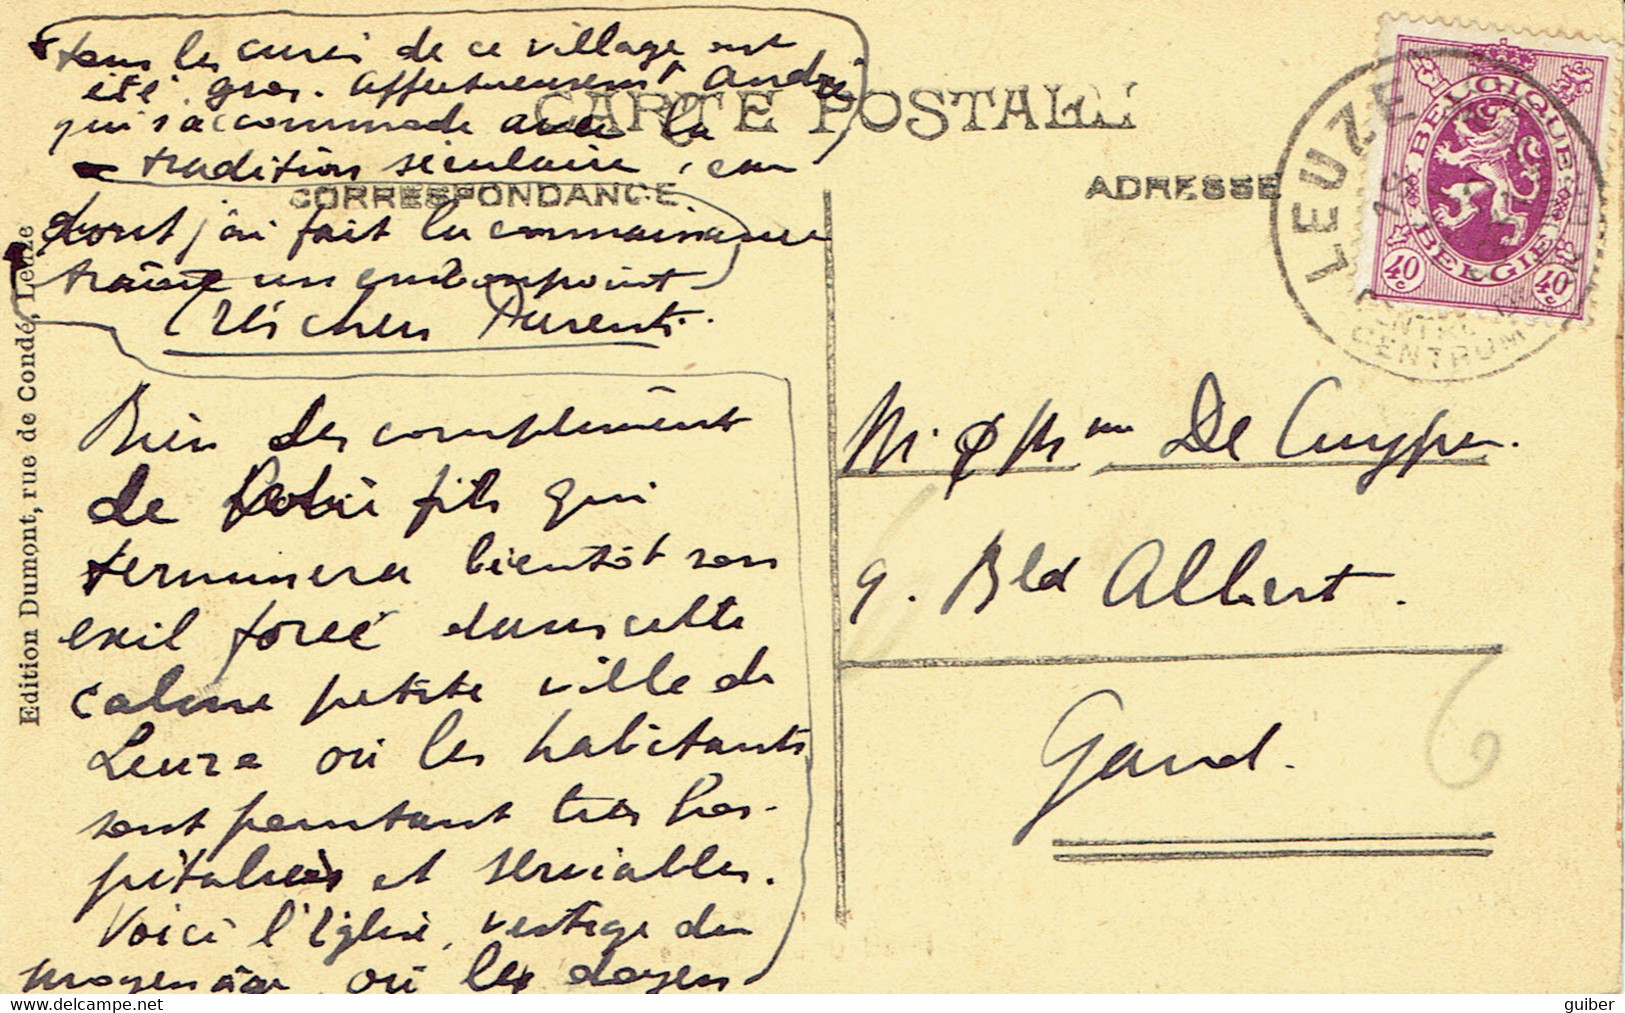 tous les curés de ce village ont
été gros. Affectueusement André
qui s'accommode avec la
tradition séculaire, car
CARTE POSTALE
CORRESPONDANCE
ADRESSE
dont j'ai fait la connaissance
traîne un embonpoint
Très chers Parents.
Bien des compliments
de votre fils qui
terminera bientôt son
exil forcé dans cette
calme petite ville de
Leuze où les habitants
sont pourtant très hos-
pitaliers et serviables.
Voici l'Eglise, vestige du
moyen âge, où le doyen
Edition Dumont, rue de Condé, Leuze
M. & Mme De Cuyper.
9. Bld Albert.
Gand.
LEUZE
CENTRUM
BELGIQUE
BELGIE
40 c
40 c
guiber